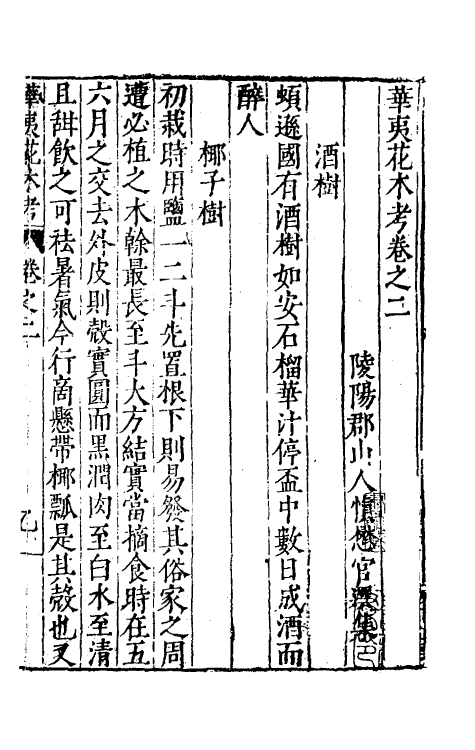 華夷花木考卷之二
陵陽郡山人慎懋官集
酒樹
頓遜國有酒樹如安石榴華汁停盃中數日成酒而
醉人
椰子樹
初栽時用鹽一二斗先置根下則易發其俗家之周
遭必植之木榦最長至斗大方結實當摘食時在五
六月之交去外皮則殼實圓而黑潤肉至白水至清
且甜飲之可祛暑氣今行啇懸帶椰瓢是其殼也又
華夷花木考 卷之二 乙